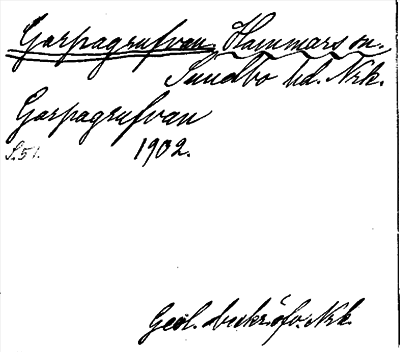 Garpagrufvan Hammars sn.
Sundbo hd. Nrk.
Garpagrufvan
S. 51. 1902.
Geol. beskr. öfv. Nrk.